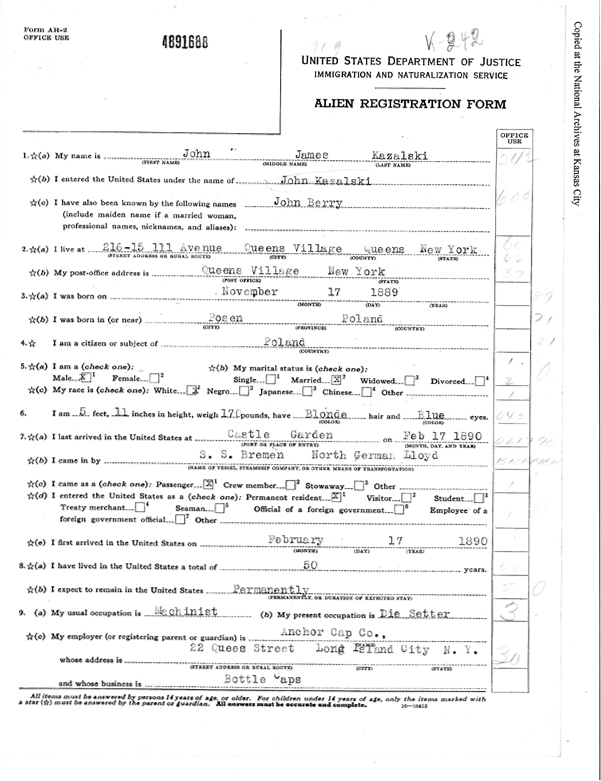 Form AR-2
OFFICE USE
4891688
K-242
UNITED STATES DEPARTMENT OF JUSTICE
IMMIGRATION AND NATURALIZATION SERVICE
ALIEN REGISTRATION FORM
Copied at the National Archives at Kansas City
OFFICE USE
1.☆(a) My name is John James Kazalski
(FIRST NAME) (MIDDLE NAME) (LAST NAME)
☆(b) I entered the United States under the name of John Kazalski
☆(c) I have also been known by the following names John Berry
(include maiden name if a married woman,
professional names, nicknames, and aliases):
2.☆(a) I live at 216-15 111 Avenue Queens Village Queens New York
(STREET ADDRESS OR RURAL ROUTE) (CITY) (COUNTY) (STATE)
☆(b) My post-office address is Queens Village New York
(POST OFFICE) (STATE)
3.☆(a) I was born on November 17 1889
(MONTH) (DAY) (YEAR)
☆(b) I was born in (or near) Posen Poland
(CITY) (PROVINCE) (COUNTRY)
4.☆ I am a citizen or subject of Poland
(COUNTRY)
5.☆(a) I am a (check one): ☆(b) My marital status is (check one):
Male X 1 Female 2 Single 1 Married X 2 Widowed 3 Divorced 4
☆(c) My race is (check one): White X 1 Negro 2 Japanese 3 Chinese 4 Other
6. I am 5 feet, 11 inches in height, weigh 170 pounds, have Blonde hair and Blue eyes.
(COLOR) (COLOR)
7.☆(a) I last arrived in the United States at Castle Garden on Feb 17 1890
(PORT OR PLACE OF ENTRY) (MONTH, DAY, AND YEAR)
☆(b) I came in by S. S. Bremen North German Lloyd
(NAME OF VESSEL, STEAMSHIP COMPANY, OR OTHER MEANS OF TRANSPORTATION)
☆(c) I came as a (check one): Passenger X 1 Crew member 2 Stowaway 3 Other
☆(d) I entered the United States as a (check one): Permanent resident X 1 Visitor 2 Student 3
Treaty merchant 4 Seaman 5 Official of a foreign government 6 Employee of a
foreign government official 7 Other
☆(e) I first arrived in the United States on February 17 1890
(MONTH) (DAY) (YEAR)
8.☆(a) I have lived in the United States a total of 50 years.
☆(b) I expect to remain in the United States Permanently
(PERMANENTLY, OR DURATION OF EXPECTED STAY)
9. (a) My usual occupation is Mechinist (b) My present occupation is Die Setter
☆(c) My employer (or registering parent or guardian) is Anchor Cap Co.,
whose address is 22 Quees Street Long Island City N. Y.
(STREET ADDRESS OR RURAL ROUTE) (CITY) (STATE)
and whose business is Bottle Caps
All items must be answered by persons 14 years of age, or older. For children under 14 years of age, only the items marked with
a star (☆) must be answered by the parent or guardian. All answers must be accurate and complete. 16—16415